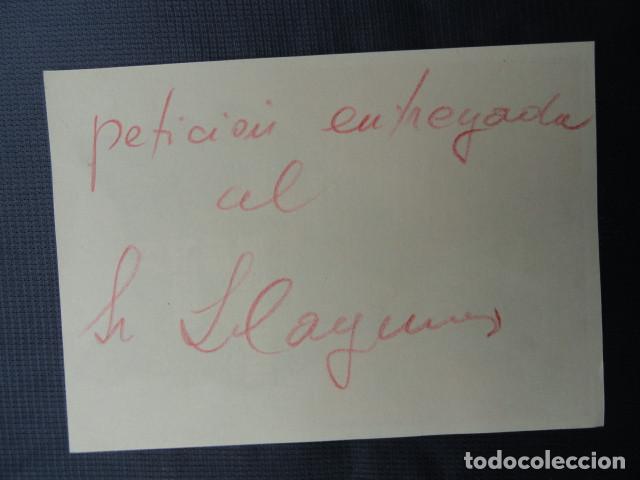 petición entregada
al
Sr Llagunes
todocoleccion